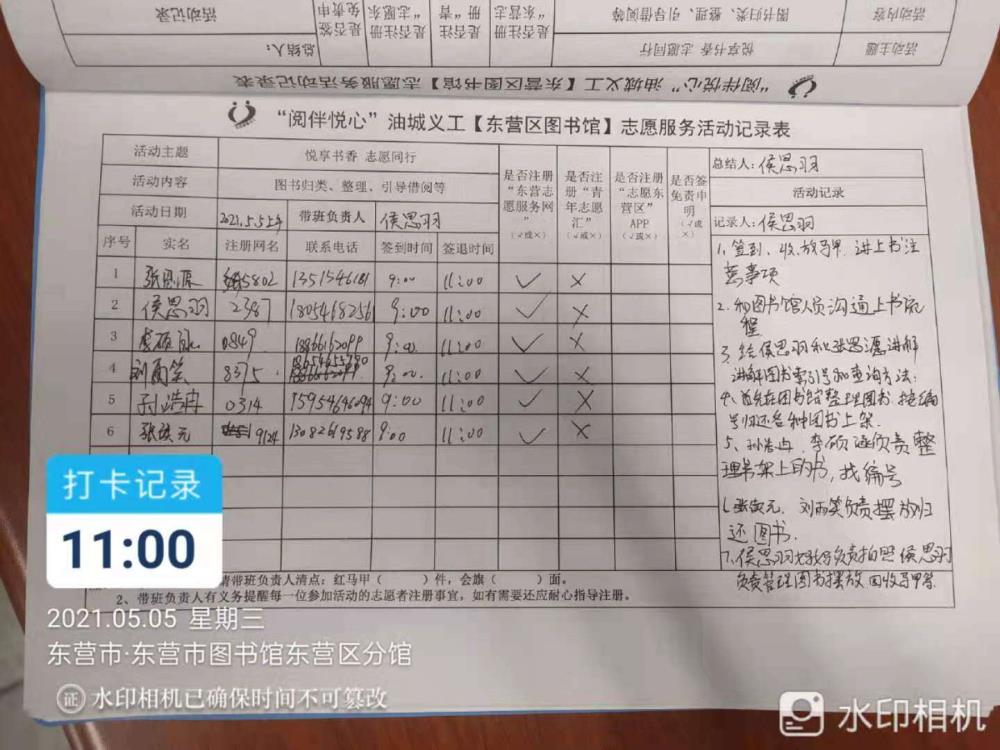 活动记录
是否签免责申
是否注册“志愿东
是否注册“青
是否注册“东营志
图书归类、整理、引导借阅等
活动内容
总结人：
悦享书香 志愿同行
活动主题
“阅伴悦心”油城义工【东营区图书馆】志愿服务活动记录表
“阅伴悦心”油城义工【东营区图书馆】志愿服务活动记录表
活动主题 悦享书香 志愿同行
活动内容 图书归类、整理、引导借阅等
活动日期 2021.5.5上午 带班负责人 侯思羽
是否注册“东营志愿服务网”（√或×）
是否注册“青年志愿汇”（√或×）
是否注册“志愿东营区”APP（√或×）
是否签免责申明（√或×）
总结人：侯思羽
活动记录
记录人：侯思羽
序号 实名 注册网名 联系电话 签到时间 签退时间
1 5802 1351546181 9:00 11:00 √ ×
2 侯思羽 2387 18054682561 9:00 11:00 √ ×
3 0849 18866162099 9:00 11:00 √ ×
4 刘雨笑 8375 9:00 11:00 √ ×
5 孙浩冉 0314 15954646094 9:00 11:00 √ ×
6 9124 13082619588 9:00 11:00 √ ×
1、签到、收、放马甲 讲上书注
意事项
2、和图书馆人员沟通上书流
程
3、给侯思羽和张思源讲解
讲解图书索引号和查询方法：
4、首先在图书馆整理图书，按编
号归还各种图书上架.
5、孙浩冉、李硕涵负责整
理书架上的书，找编号
6、刘雨笑负责摆放归
还图书.
7、侯思羽 负责拍照 侯思羽
负责管理图书摆放 回收马甲等
请带班负责人清点：红马甲（ ）件，会旗（ ）面。
2、带班负责人有义务提醒每一位参加活动的志愿者注册事宜，如有需要还应耐心指导注册。
打卡记录
11:00
2021.05.05 星期三
东营市·东营市图书馆东营区分馆
证 水印相机已确保时间不可篡改
水印相机